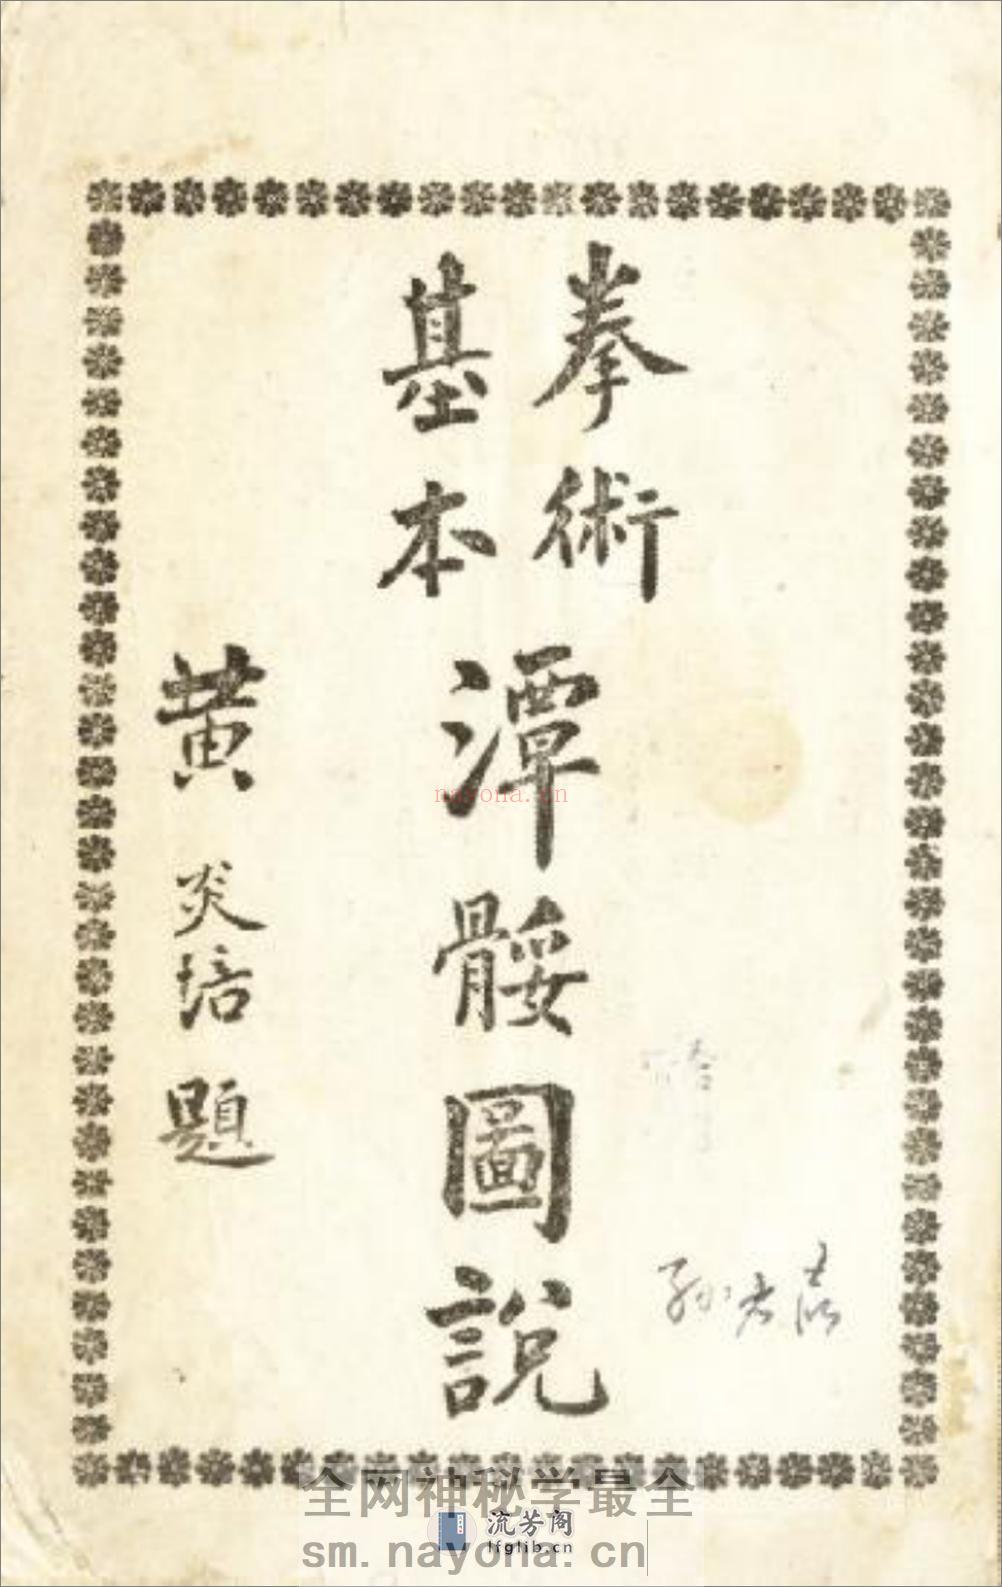 拳術
基本
潭骽圖說
黃炎培題
nayona.cn
全网神秘学最全
流芳阁
lfglib.cn
sm.nayona.cn